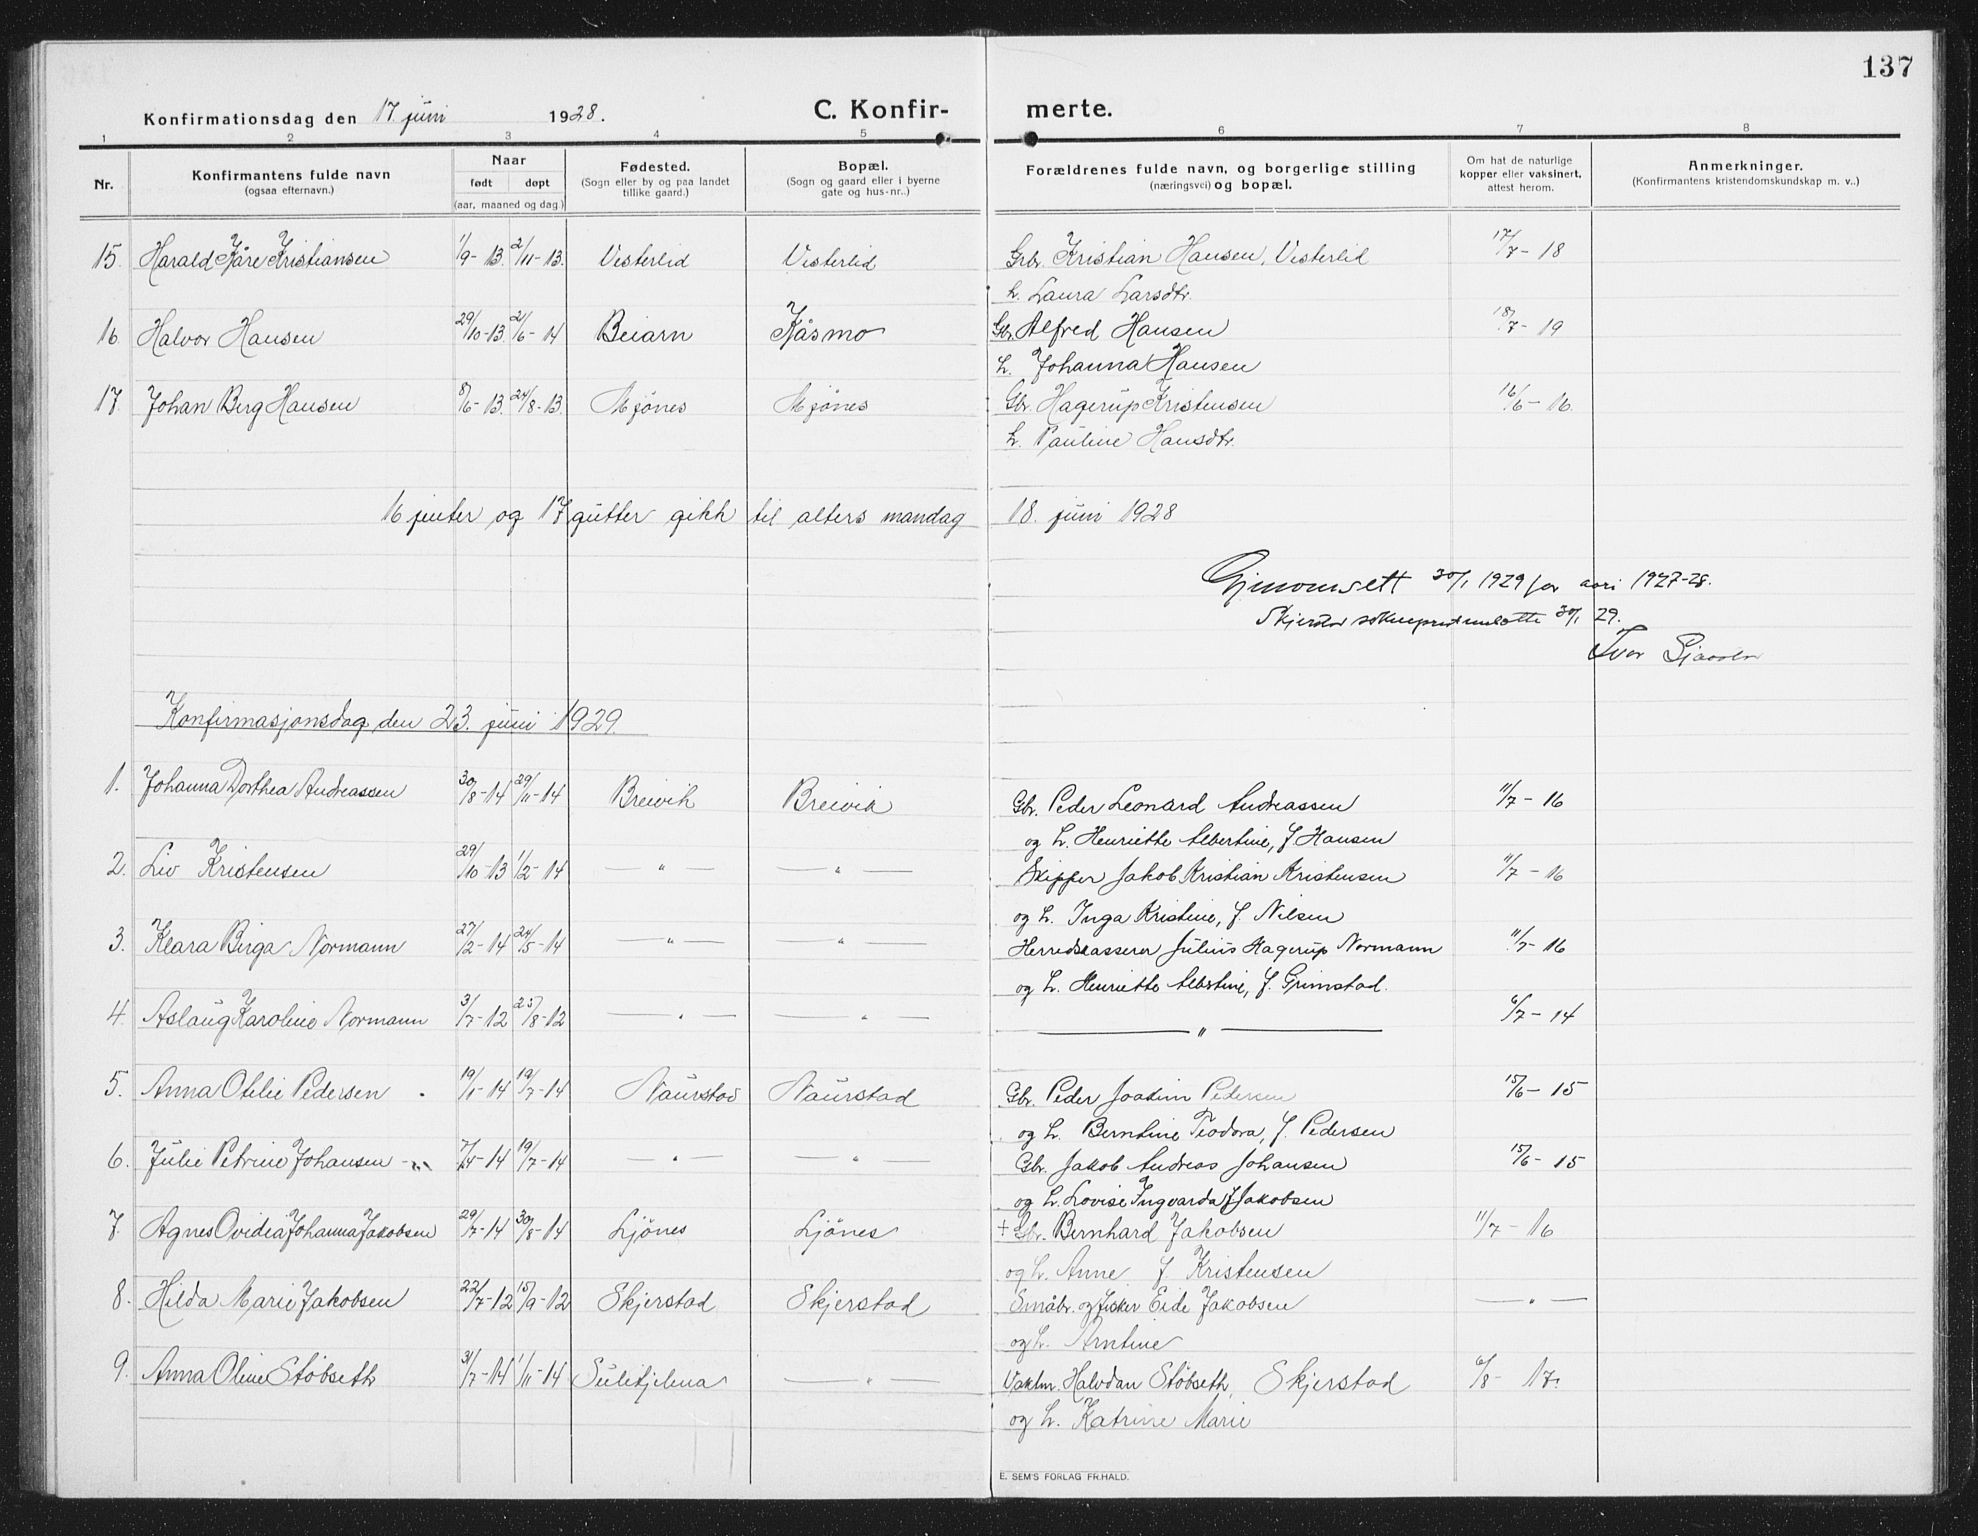 137
Konfirmationsdag den 17. juni 1928. C. Konfir- merte.
1 2 3 4 5 6 7 8
Nr. Konfirmantens fulde navn (ogsaa efternavn.) Naar født døpt (aar, maaned og dag) Fødested. (Sogn eller by og paa landet tillike gaard.) Bopæl. (Sogn og gaard eller i byerne gate og hus-nr..) Forældrenes fulde navn, og borgerlige stilling (næringsvei) og bopæl. Om hat de naturlige kopper eller vaksinert, attest herom. Anmerkninger. (Konfirmantens kristendomskundskap m. v..)
15. Harald Kåre Kristiansen 1/9-13. 2/11-13. Vesterlid Vesterlid Gbr. Kristian Hansen, Vesterlid 17/7-18
h. Laura Larsdtr.
16. Halvor Hansen 29/10-13. 21/6-14 Beiarn Kåsmo Gbr. Alfred Hansen 18/7-19
h. Johanna Hansen
17. Johan Berg Hansen 8/6-13. 24/8-13. Mjönes Mjönes Gbr. Hagerup Kristensen 16/6-16.
h. Pauline Hansdtr.
16 jenter og 17 gutter gikk til alters mandag 18. juni 1928
Gjenomsett 30/1 1929 for aari 1927-28.
Skjerstad 30/1 29.
Konfirmasjonsdag den 23. juni 1929.
1. Johanna Dorthea Andreassen 30/8-14 29/11-14 Breivik Breivik Gbr. Peder Leonard Andreassen 11/7-16
og h. Henriette Albertine, f. Hansen
2. Liv Kristensen 29/10-13 1/2-14 — " — — " — Skipper Jakob Kristian Kristensen 11/7-16
og h. Inga Kristine, f. Nilsen
3. Klara Birga Normann 27/2-14 24/5-14 — " — — " Herredskasserer Julius Hagerup Normann 11/7-16
og h. Henriette Albertine, f. Grimstad.
4. Aslaug Karoline Normann 3/7-12 25/8-12 — " — — " — — " — 6/7-14
5. Anna Otelie Pedersen 19/1-14 19/7-14 Naurstad Naurstad Gbr. Peder Joakim Pedersen 15/6-15
og h. Berntine Teodora, f. Pedersen
6. Julie Petrine Johansen 7/4-14 19/7-14 — " — — " — Gbr. Jakob Andreas Johansen 15/6-15
og h. Lovise Ingvarda f. Jakobsen
7. Agnes Ovidia Johanna Jakobsen 29/7-14 30/8-14 Ljönes Ljönes + Gbr. Bernhard Jakobsen 11/7-16
og h. Anne f. Kristensen
8. Hilda Marie Jakobsen 22/7-12 15/9-12 Skjerstad Skjerstad Småbr. og fisker Eide Jakobsen — " —
og h. Arntine
9. Anna Oline Stöbseth 31/7-14 1/11-14 Sulitjelma — " — Vaktm. Halvdan Stöbseth, Skjerstad 6/8-17.
og h. Katrine Marie
E. SEM'S FORLAG FR.HALD.